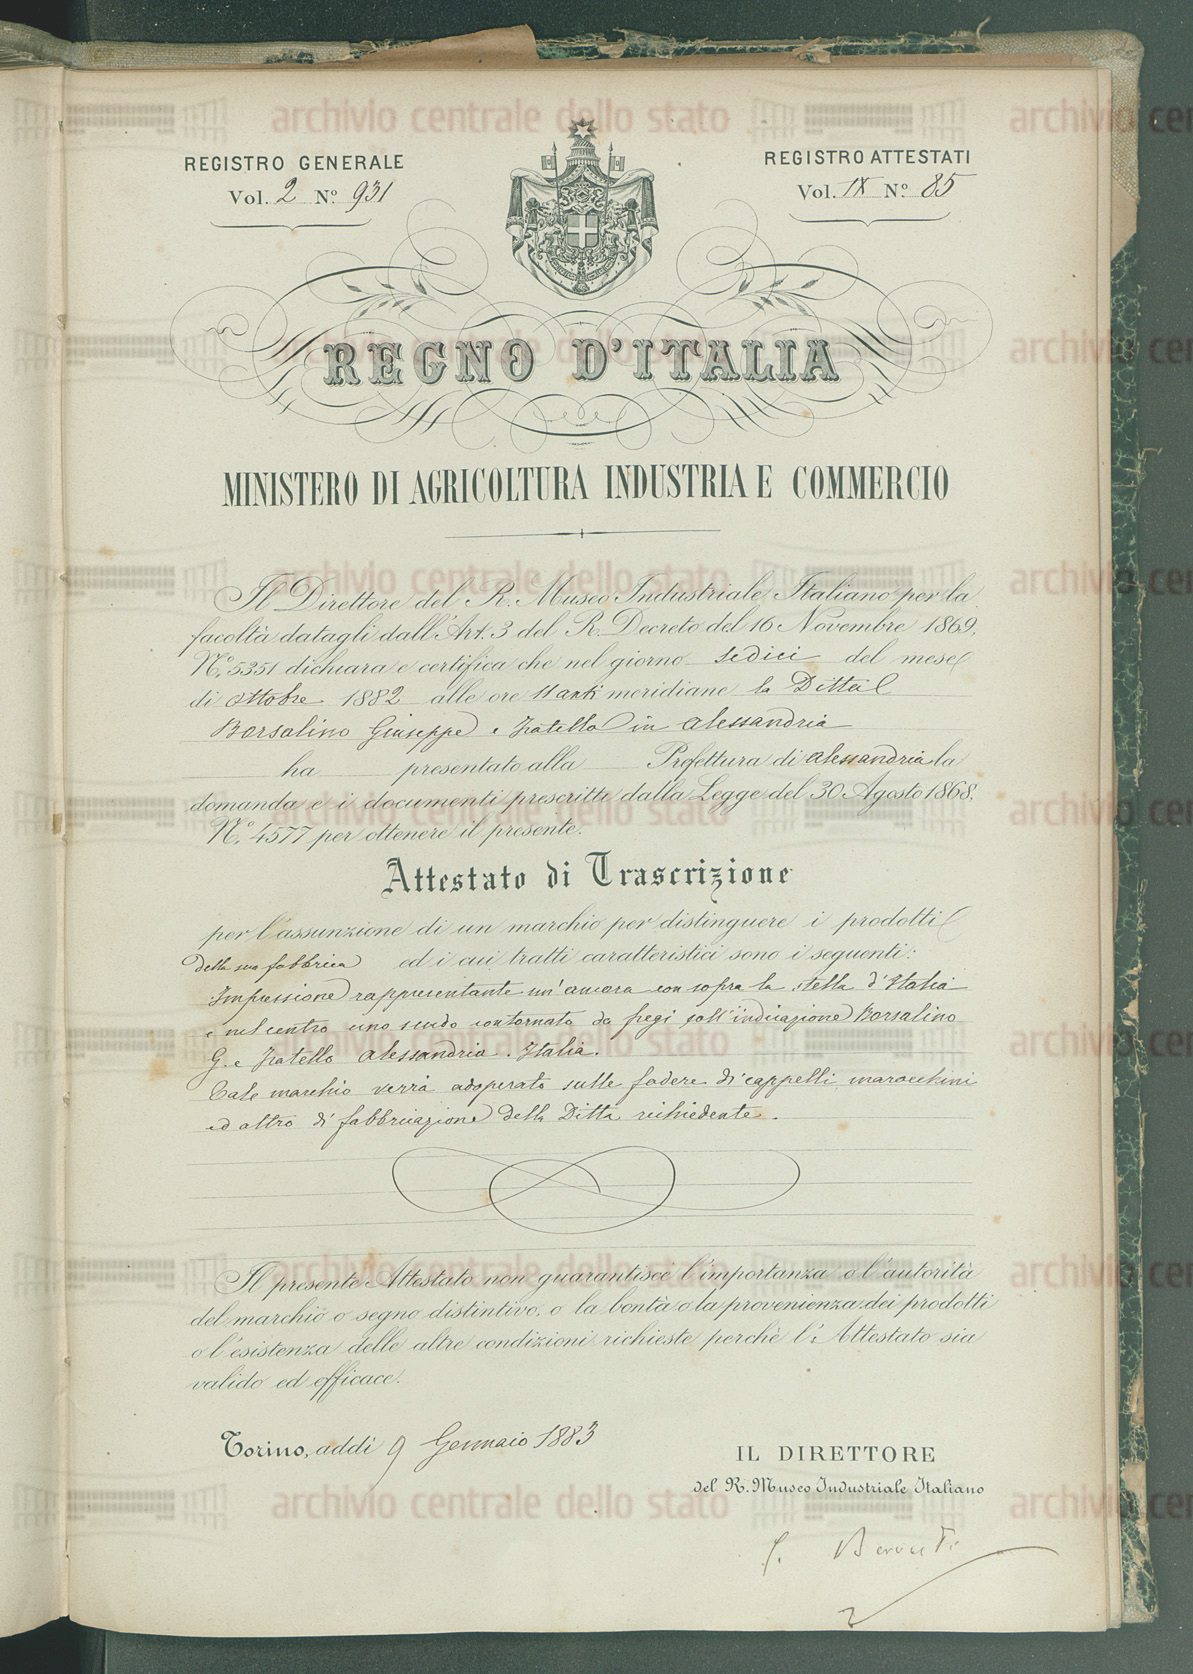 REGISTRO GENERALE
Vol. 2 N.º 931
REGISTRO ATTESTATI
Vol. IX N.º 85
REGNO D'ITALIA
MINISTERO DI AGRICOLTURA INDUSTRIA E COMMERCIO
Il Direttore del R. Museo Industriale Italiano per la
facoltà datagli dall'Art. 3 del R. Decreto del 16 Novembre 1869,
N.º 5351 dichiara e certifica che nel giorno sedici del mese
di ottobre 1882 alle ore 11 anti meridiane la Ditta
Borsalino Giuseppe e Fratello in Alessandria
ha presentato alla Prefettura di Alessandria la
domanda e i documenti prescritti dalla Legge del 30 Agosto 1868,
N.º 4577 per ottenere il presente.
Attestato di Trascrizione
per l'assunzione di un marchio per distinguere i prodotti
della sua fabbrica ed i cui tratti caratteristici sono i seguenti:
Impressione rappresentante un'ancora con sopra la stella d'Italia
e nel centro uno scudo contornato da fregi coll'indicazione Borsalino
G. e Fratello Alessandria. Italia.
Tale marchio verrà adoperato sulle fodere di cappelli, marocchini
ed altro di fabbricazione della Ditta richiedente.
Il presente Attestato non guarantisce l'importanza o l'autorità
del marchio o segno distintivo, o la bontà o la provenienza dei prodotti
o l'esistenza delle altre condizioni richieste perchè l'Attestato sia
valido ed efficace.
Torino, addì 9 Gennaio 1883
IL DIRETTORE
del R. Museo Industriale Italiano
G. Berruti
archivio centrale dello stato